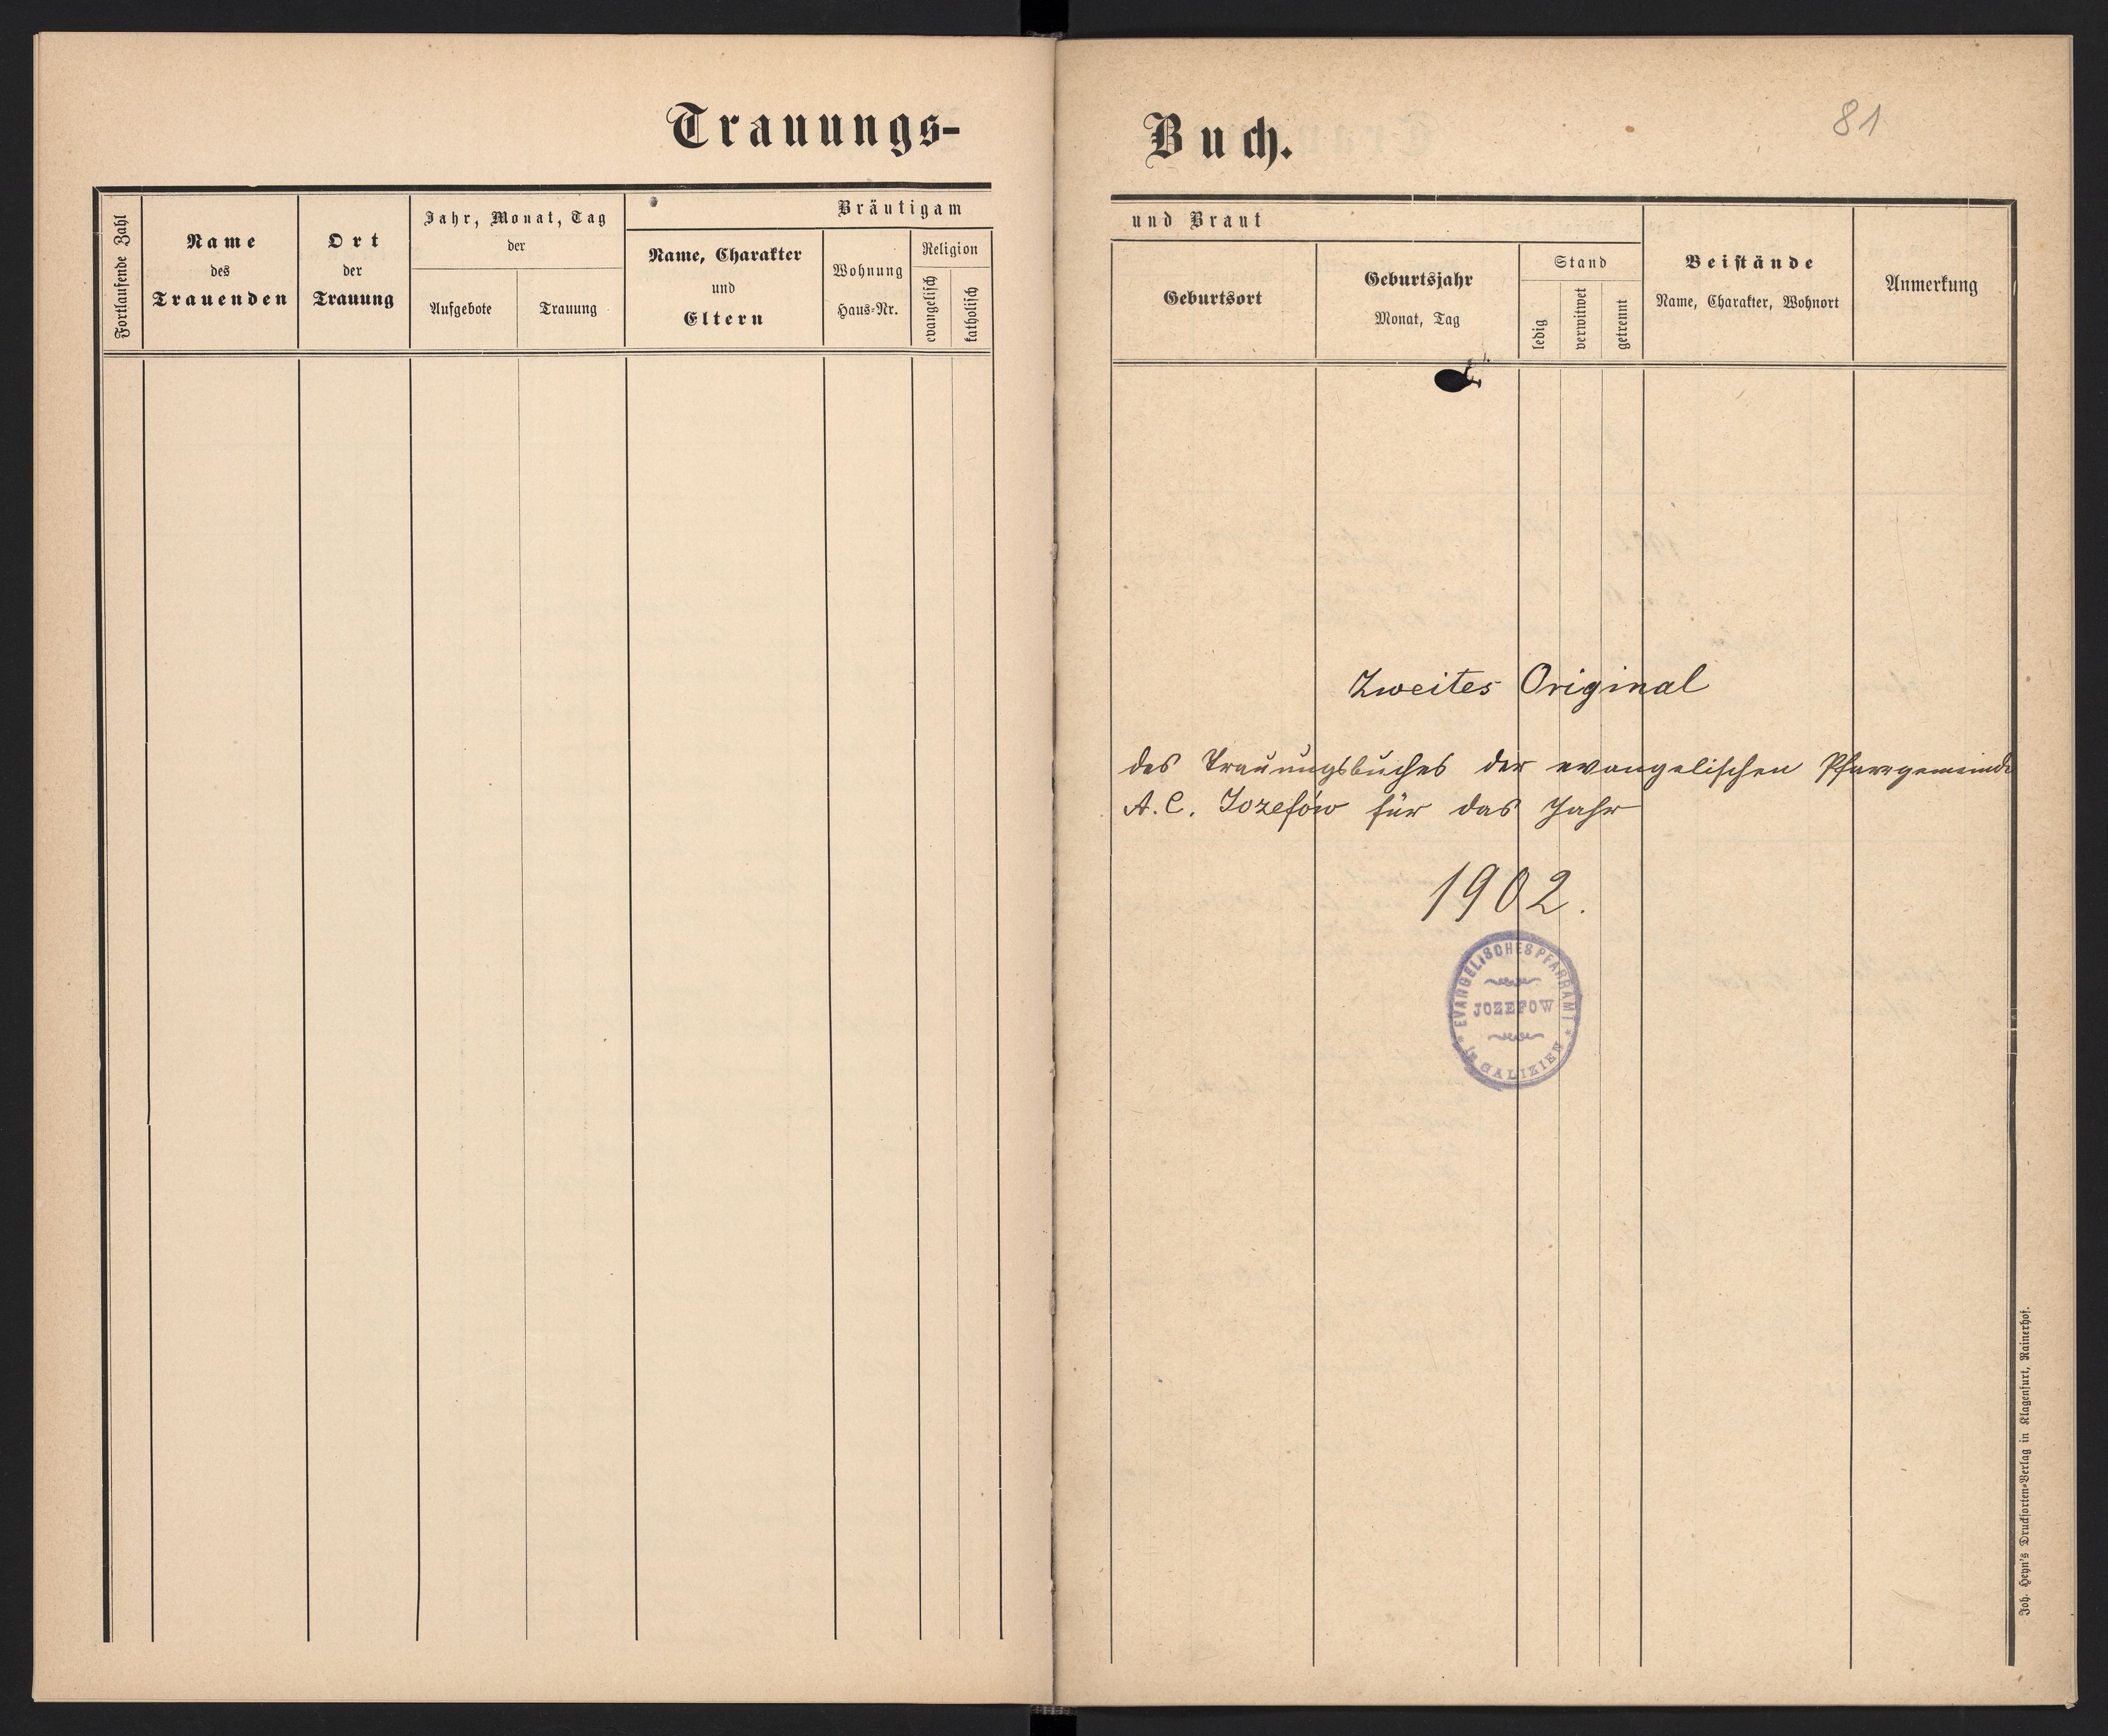 Trauungs-
Fortlaufende Zahl
Name
des
Trauenden
Ort
der
Trauung
Jahr, Monat, Tag
der
Aufgebote
Trauung
Bräutigam
Name, Charakter
und
Eltern
Wohnung
Haus-Nr.
Religion
evangelisch
katholisch
Buch.
81
und Braut
Geburtsort
Geburtsjahr
Monat, Tag
Stand
ledig
verwitwet
getrennt
Beistände
Name, Charakter, Wohnort
Anmerkung
Zweites Original
des Trauungsbuches der evangelischen Pfarrgemeinde
A. C. Jozefów für das Jahr
1902.
EVANGELISCHES PFARRAMT
JOZEFOW
in GALIZIEN
Joh. Heyn's Drucksorten-Verlag in Klagenfurt, Rainerhof.